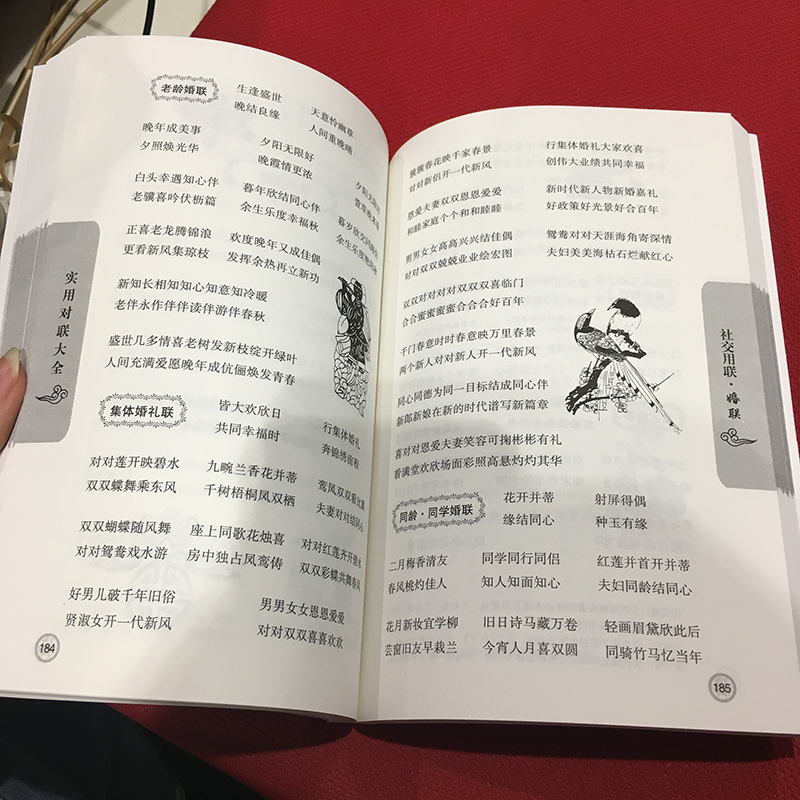 老龄婚联
生逢盛世
晚结良缘
天意怜幽草
人间重晚晴
晚年成美事
夕照焕光华
夕阳无限好
晚霞情更浓
夕阳无限好
白头幸遇知心伴
老骥喜吟伏枥篇
暮年欣结同心伴
余生乐度幸福秋
暮岁欣交同心伴
余生乐度
正喜老龙腾锦浪
更看新风集琼枝
欢度晚年又成佳偶
发挥余热再立新功
新知长相知知心知意知冷暖
老伴永作伴伴读伴游伴春秋
盛世几多情喜老树发新枝绽开绿叶
人间充满爱愿晚年成伉俪焕发青春
集体婚礼联
皆大欢欣日
共同幸福时
行集体婚礼
奔锦绣前程
对对莲开映碧水
双双蝶舞乘东风
九畹兰香花并蒂
千树梧桐凤双栖
鸾凤双双看比翼
夫妻对对结同心
双双蝴蝶随风舞
对对鸳鸯戏水游
座上同歌花烛喜
房中独占凤鸾俦
对对红莲齐开碧水
双双彩蝶共舞春风
好男儿破千年旧俗
贤淑女开一代新风
男男女女恩恩爱爱
对对双双喜喜欢欢
184
实用对联大全
簇簇春花映千家春景
对对新侣开一代新风
行集体婚礼大家欢喜
创伟大业绩共同幸福
恩爱夫妻双双恩恩爱爱
和睦家庭个个和和睦睦
新时代新人物新婚嘉礼
好政策好光景好合百年
男男女女高高兴兴结佳偶
对对双双兢兢业业绘宏图
鸳鸯对对天涯海角寄深情
夫妇美美海枯石烂献红心
双双对对对对双双双喜临门
合合蜜蜜蜜蜜合合合好百年
千门春意时时春意映万里春景
两个新人对对新人开一代新风
同心同德为同一目标结成同心伴
新郎新娘在新的时代谱写新篇章
喜对对恩爱夫妻笑容可掬彬彬有礼
看满堂欢欣场面彩照高悬灼灼其华
同龄·同学婚联
花开并蒂
缘结同心
射屏得偶
种玉有缘
二月梅香清友
春风桃灼佳人
同学同行同侣
知人知面知心
红莲并首开并蒂
夫妇同龄结同心
花月新妆宜学柳
芸窗旧友早栽兰
旧日诗马藏万卷
今宵人月喜双圆
轻画眉黛欣此后
同骑竹马忆当年
185
社交用联·婚联